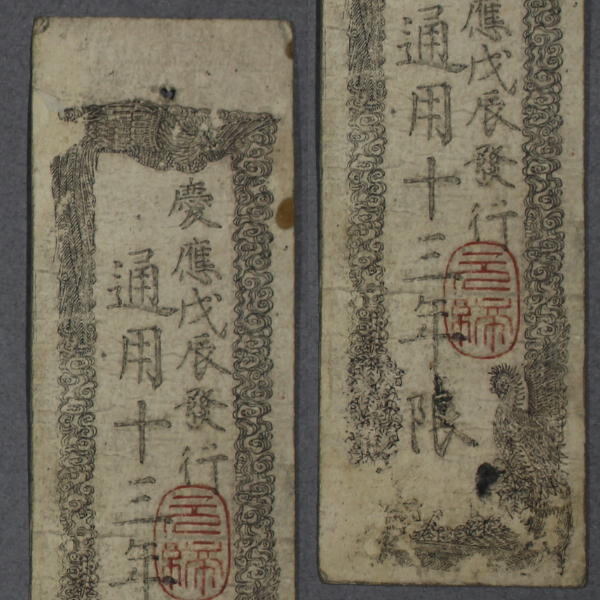 慶應戊辰發行
通用十三年
應戊辰發行
通用十三年限